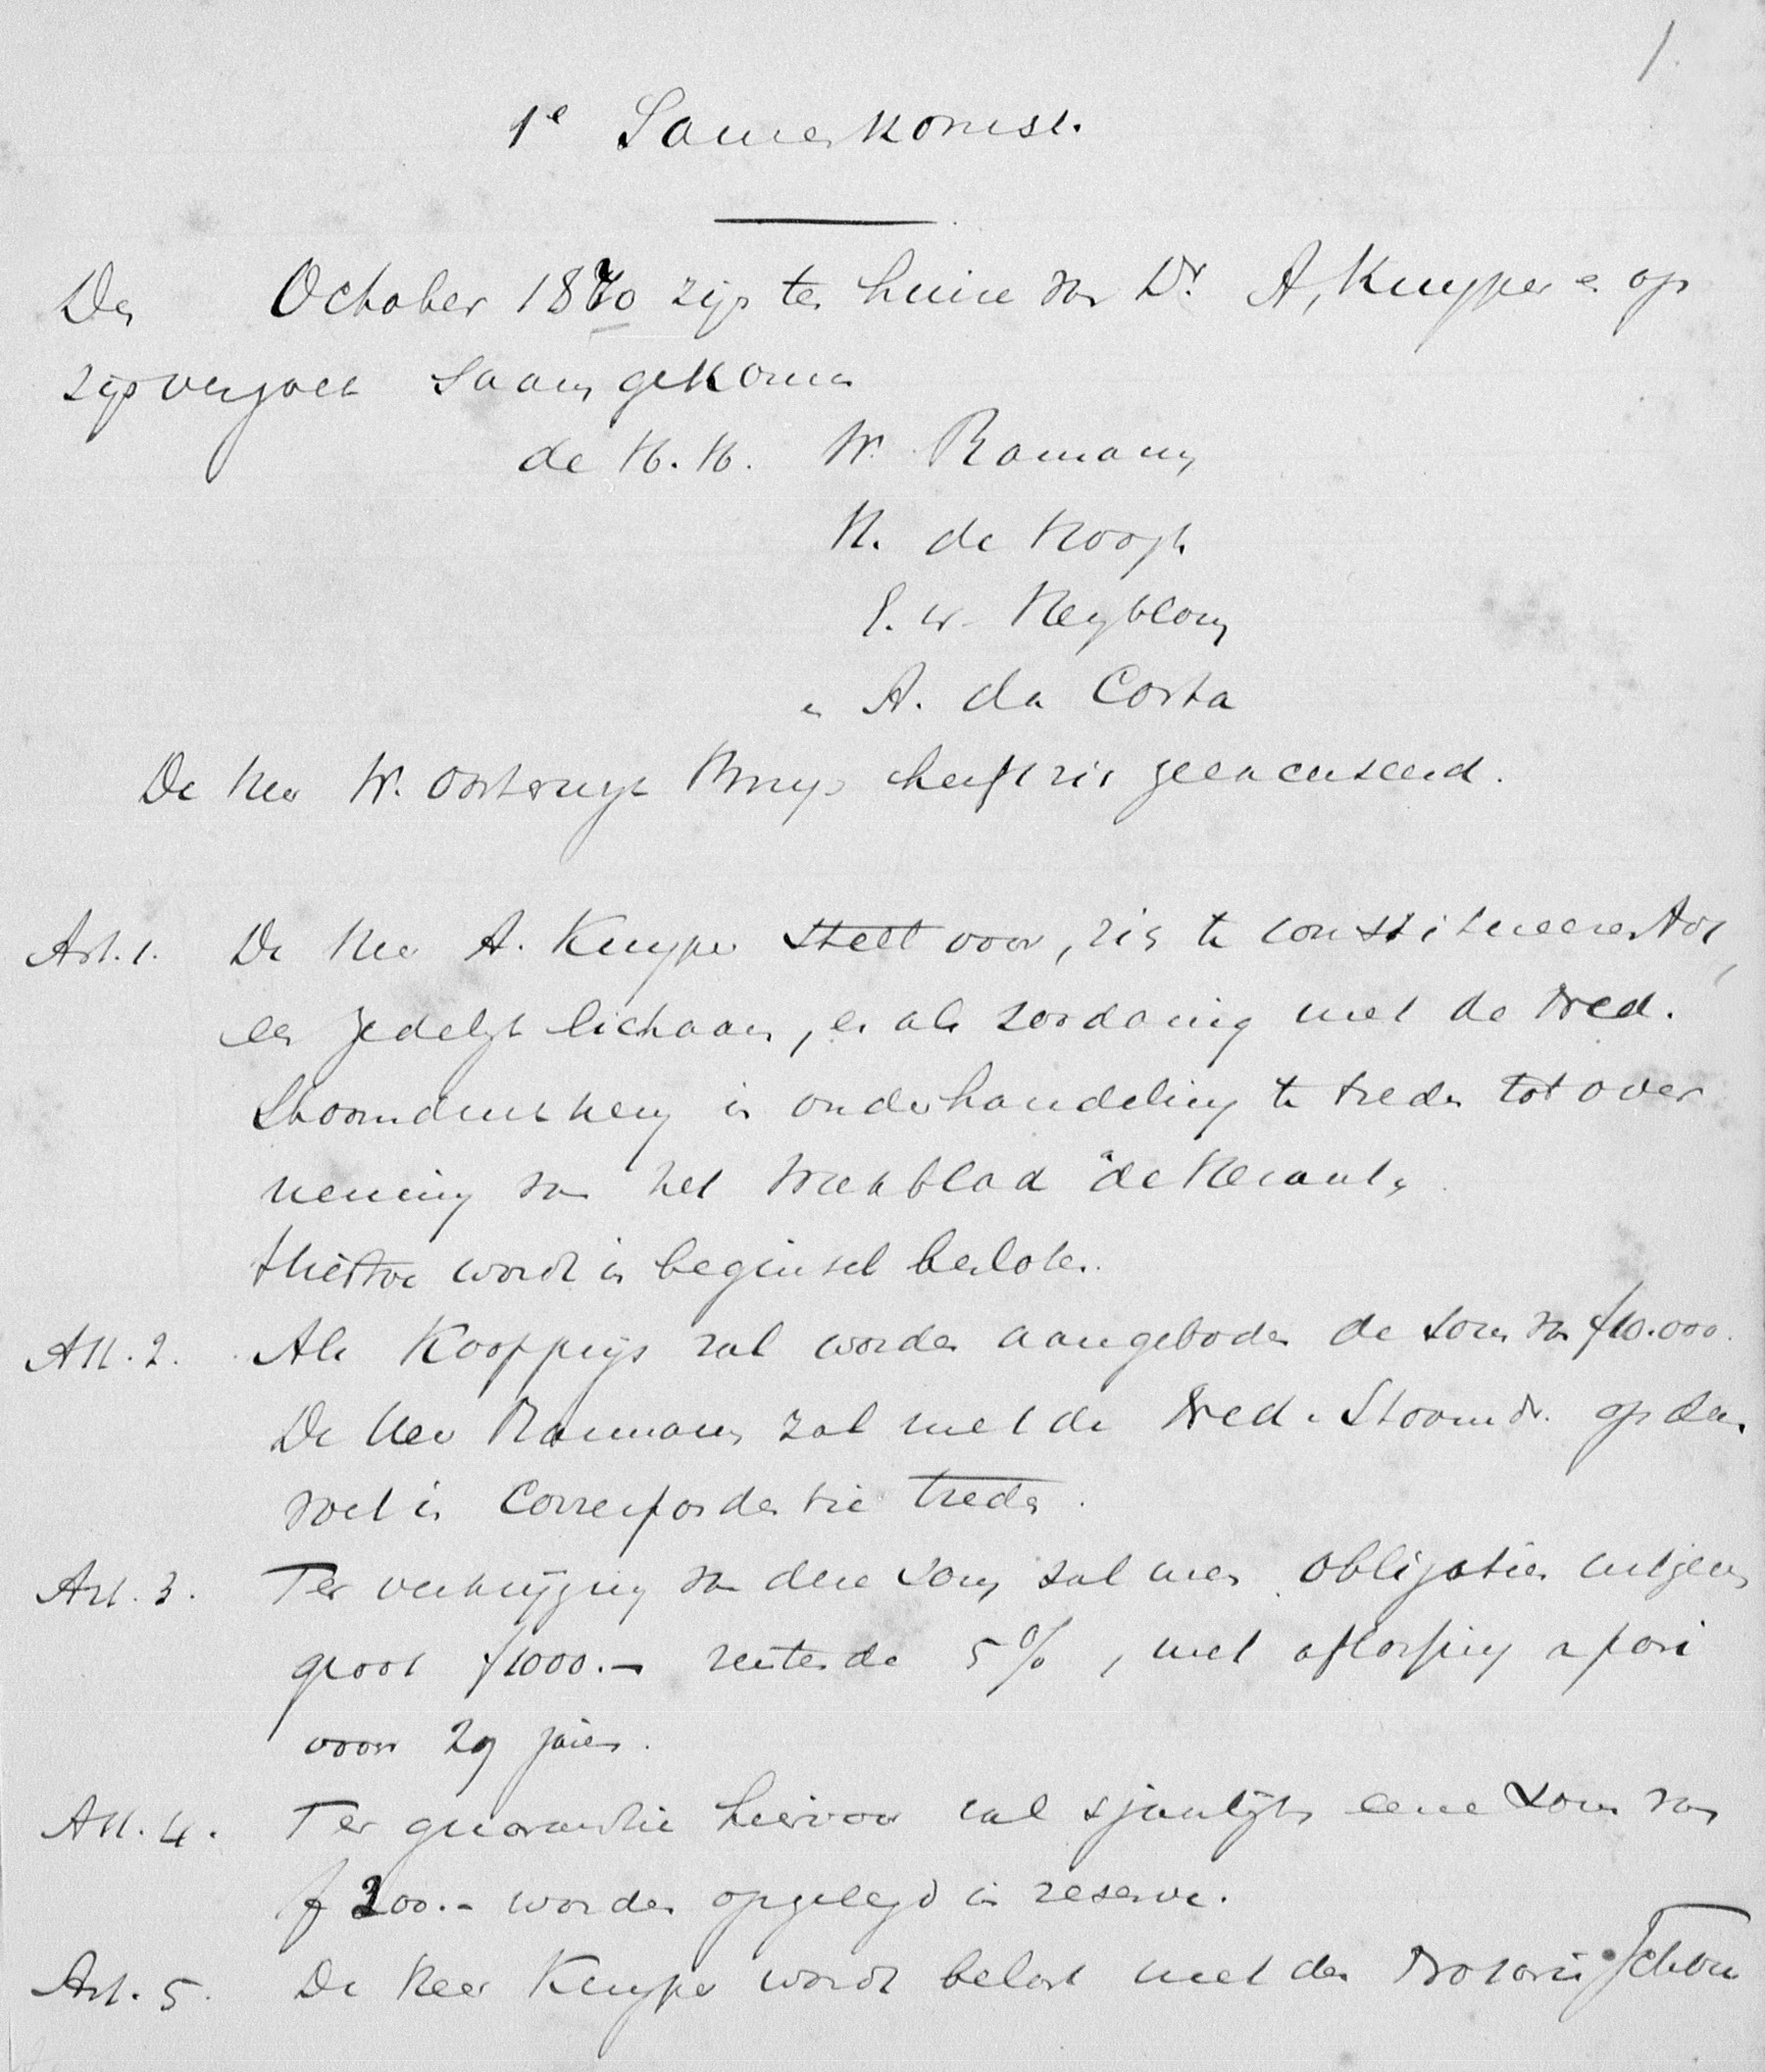 1.
1e Samenkomst.
Den October 1870 zijn ten huize van Dr A, Kuyper en op
zijn verzoek saamgekomen
de H.H. W. Hovy
K. de Hoogh
E. W. Heyblom
en A. da Costa
De Heer W. Oosterwijk Bruyn heeft zich geexcuseerd.
Art. 1. De Heer A. Kuyper stelt voor, zich te constitueeren tot
een zedelijk lichaam, en als zoodanig met de Ned.
Stoomdrukkerij in onderhandeling te treden tot over
neming van het weekblad "de Heraut"
Hiertoe wordt in beginsel besloten.
Art. 2. Als Koopprijs zal worden aangeboden de som van f10.000.
De Heer zal met de Ned. Stoomdr. op dien
voet in Correspondentie treden.
Art. 3. Ter verkrijging van deze som zal men obligatien uitgeven
groot f1000.- rentende 5%, met aflossing a pari
voor 20 jaren.
Art. 4. Ter guarantie hiervoor zal sjaarlijks eene som van
f 200.- worden opgelegd in reserve.
Art. 5. De Heer Kuyper wordt belast met den Notaris